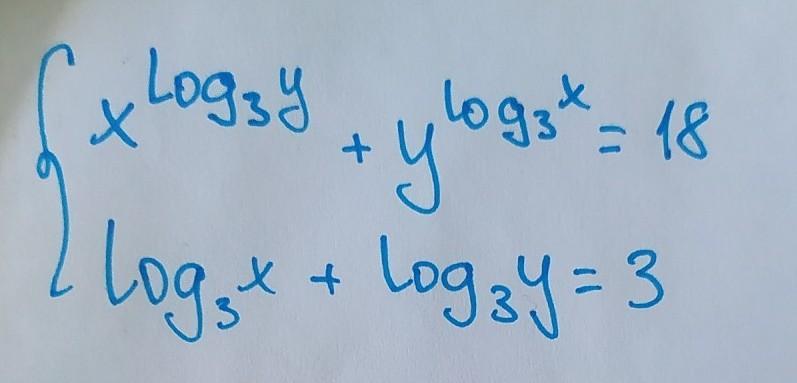 x^{log_3 y} + y^{log_3 x} = 18
log_3 x + log_3 y = 3